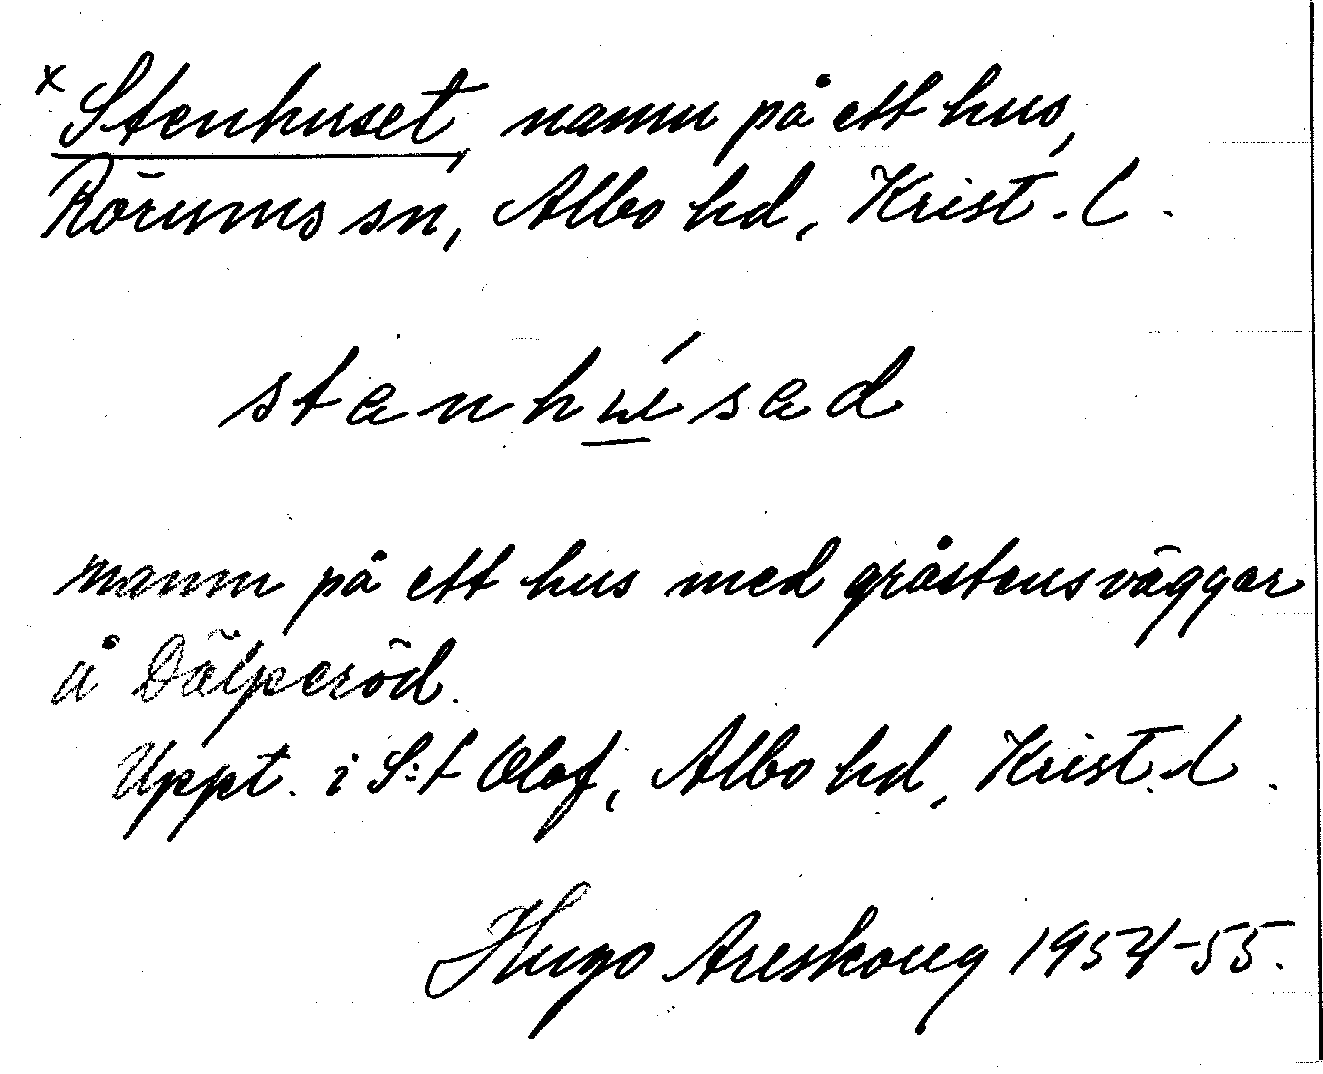 x Stenhuset, namn på ett hus,
Rörums sn, Albo hd, Krist. l.
stanhúsad
namn på ett hus med gråstensväggar
å Dälperöd.
Uppt. i S:t Olof, Albo hd, Krist. l.
Hugo Areskoug 1954-55.